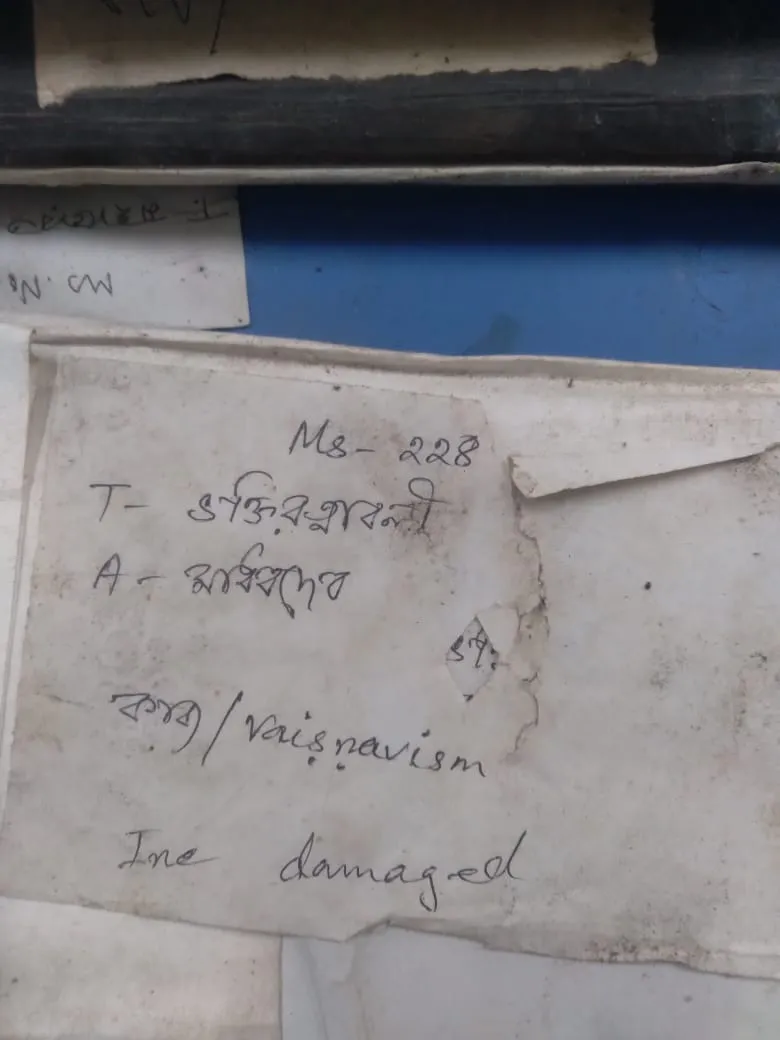 Ms- 228
T- ভক্তিরত্নাবলী
A - মাধবদেব
কাব্য / Vaiṣṇavism
Inc damaged